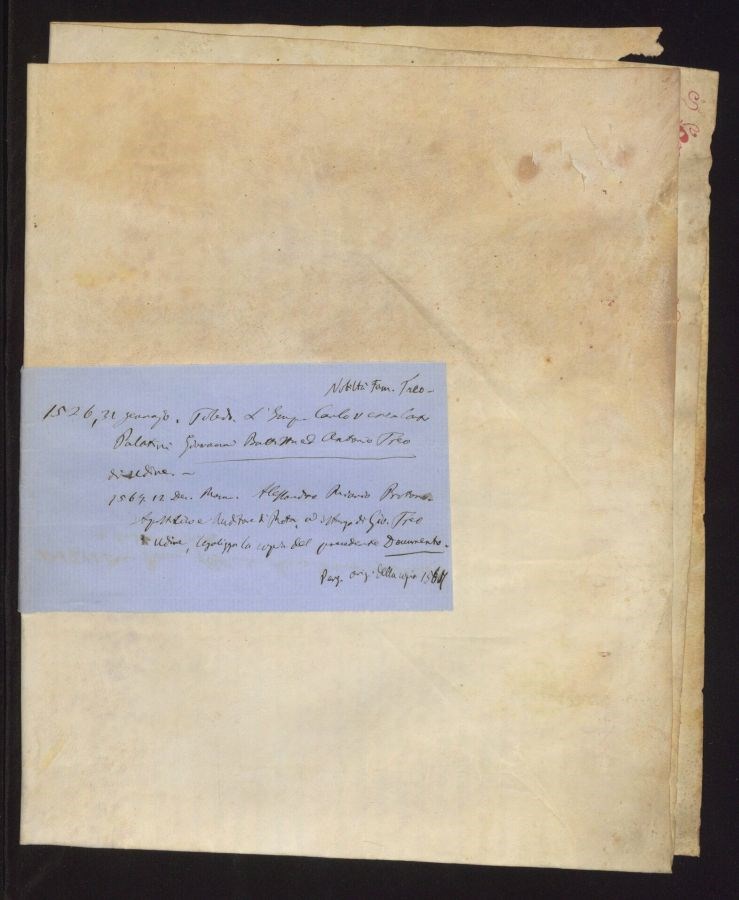 Nobiltà Fam. Treo -
1526, 31 gennajo. Toledo. L'Imp. Carlo V crea Conti
Palatini Giovanni Battista ed Antonio Treo
di Udine. -
1564. 12 Dec. Roma. Alessandro Riario Proton.
Apostolico e Auditore di Rota, ad istanza di Gio. Treo
Udine, legalizza la copia del precedente Documento.
Perg. orig. della copia 1564